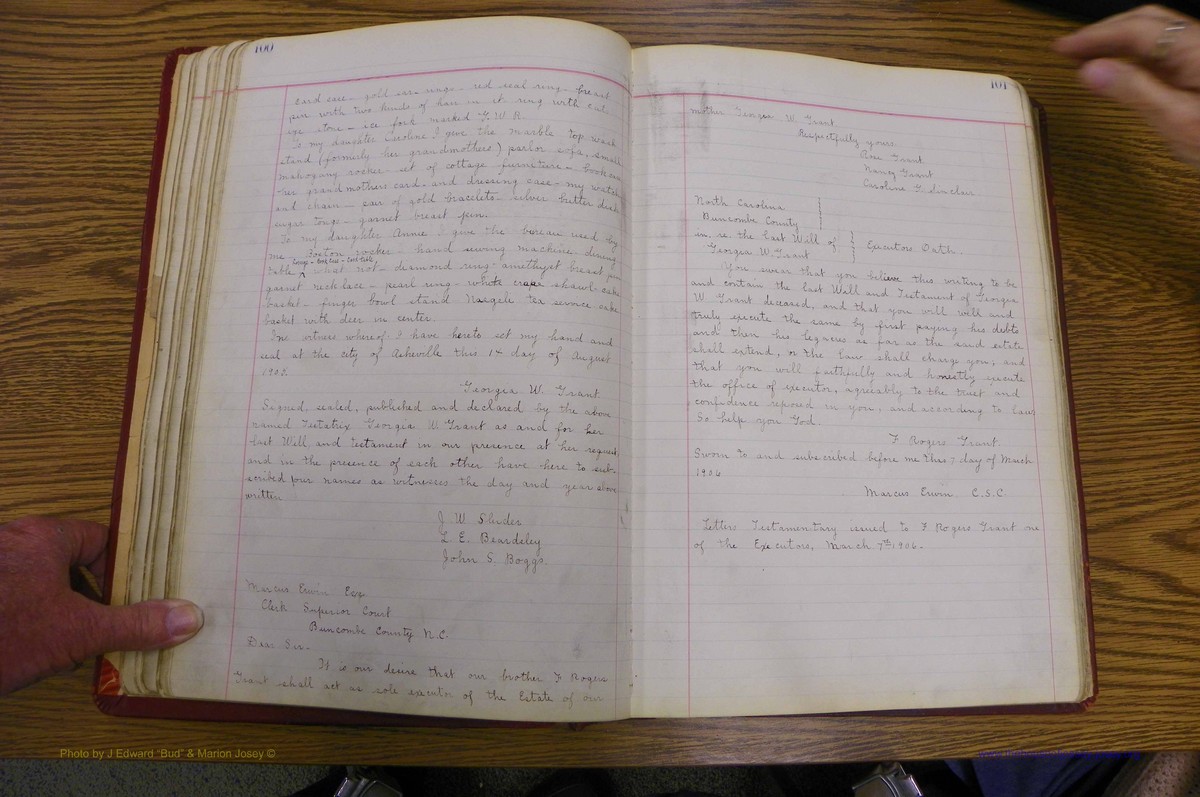 100
card case - gold ear rings - red seal ring - breast
pin with two kinds of hair in it ring with cut
eye stone - ice fork marked G. W. R.
To my daughter Caroline I give the marble top wash
stand (formerly her grandmothers) parlor sofa, small
mahogany rocker set of cottage furniture - book case
her grandmothers card - and dressing case - my watch
and chain - pair of gold bracelets - silver butter dish
sugar tongs - garnet breast pin.
To my daughter Annie I give the bureau used by
me - Boston rocker - hand sewing machine - dining
table what not - diamond ring - amethyst breast pin
garnet necklace - pearl ring - white crape shawl - cake
basket - finger bowl stand tea service cake
basket with deer in center.
In witness whereof I have hereto set my hand and
seal at the city of Asheville this 14 day of August
Georgia W. Grant
Signed, sealed, published and declared by the above
named Testatrix Georgia W Grant as and for her
last Will and testament in our presence at her request
and in the presence of each other have here to sub-
scribed our names as witnesses the day and year above
written
J. W. Sluder
L. E. Beardsley
John S. Boggs.
Marcus Erwin Esq
Clerk Superior Court
Buncombe County N.C.
Dear Sir -
It is our desire that our brother F Rogers
Grant shall act as sole executor of the Estate of our
101
mother Georgia W. Grant
Respectfully yours
Grant
Nancy Grant
Caroline G. Sinclair
North Carolina
Buncombe County
in. re. the last Will of } Executors Oath.
Georgia W. Grant
You swear that you believe this writing to be
and contain the last Will and Testament of Georgia
W. Grant deceased, and that you will well and
truly execute the same by first paying his debts
and then his legacies as far as the said estate
shall extend, or the law shall charge you, and
that you will faithfully and honestly execute
the office of executor, agreeably to the trust and
confidence reposed in you, and according to law
So help you God.
F Rogers Grant.
Sworn to and subscribed before me this 7 day of March
1906
Marcus Erwin C.S.C.
Letters Testamentary issued to F Rogers Grant one
of the Executors, March 7th 1906.
Photo by J Edward "Bud" & Marion Josey ©